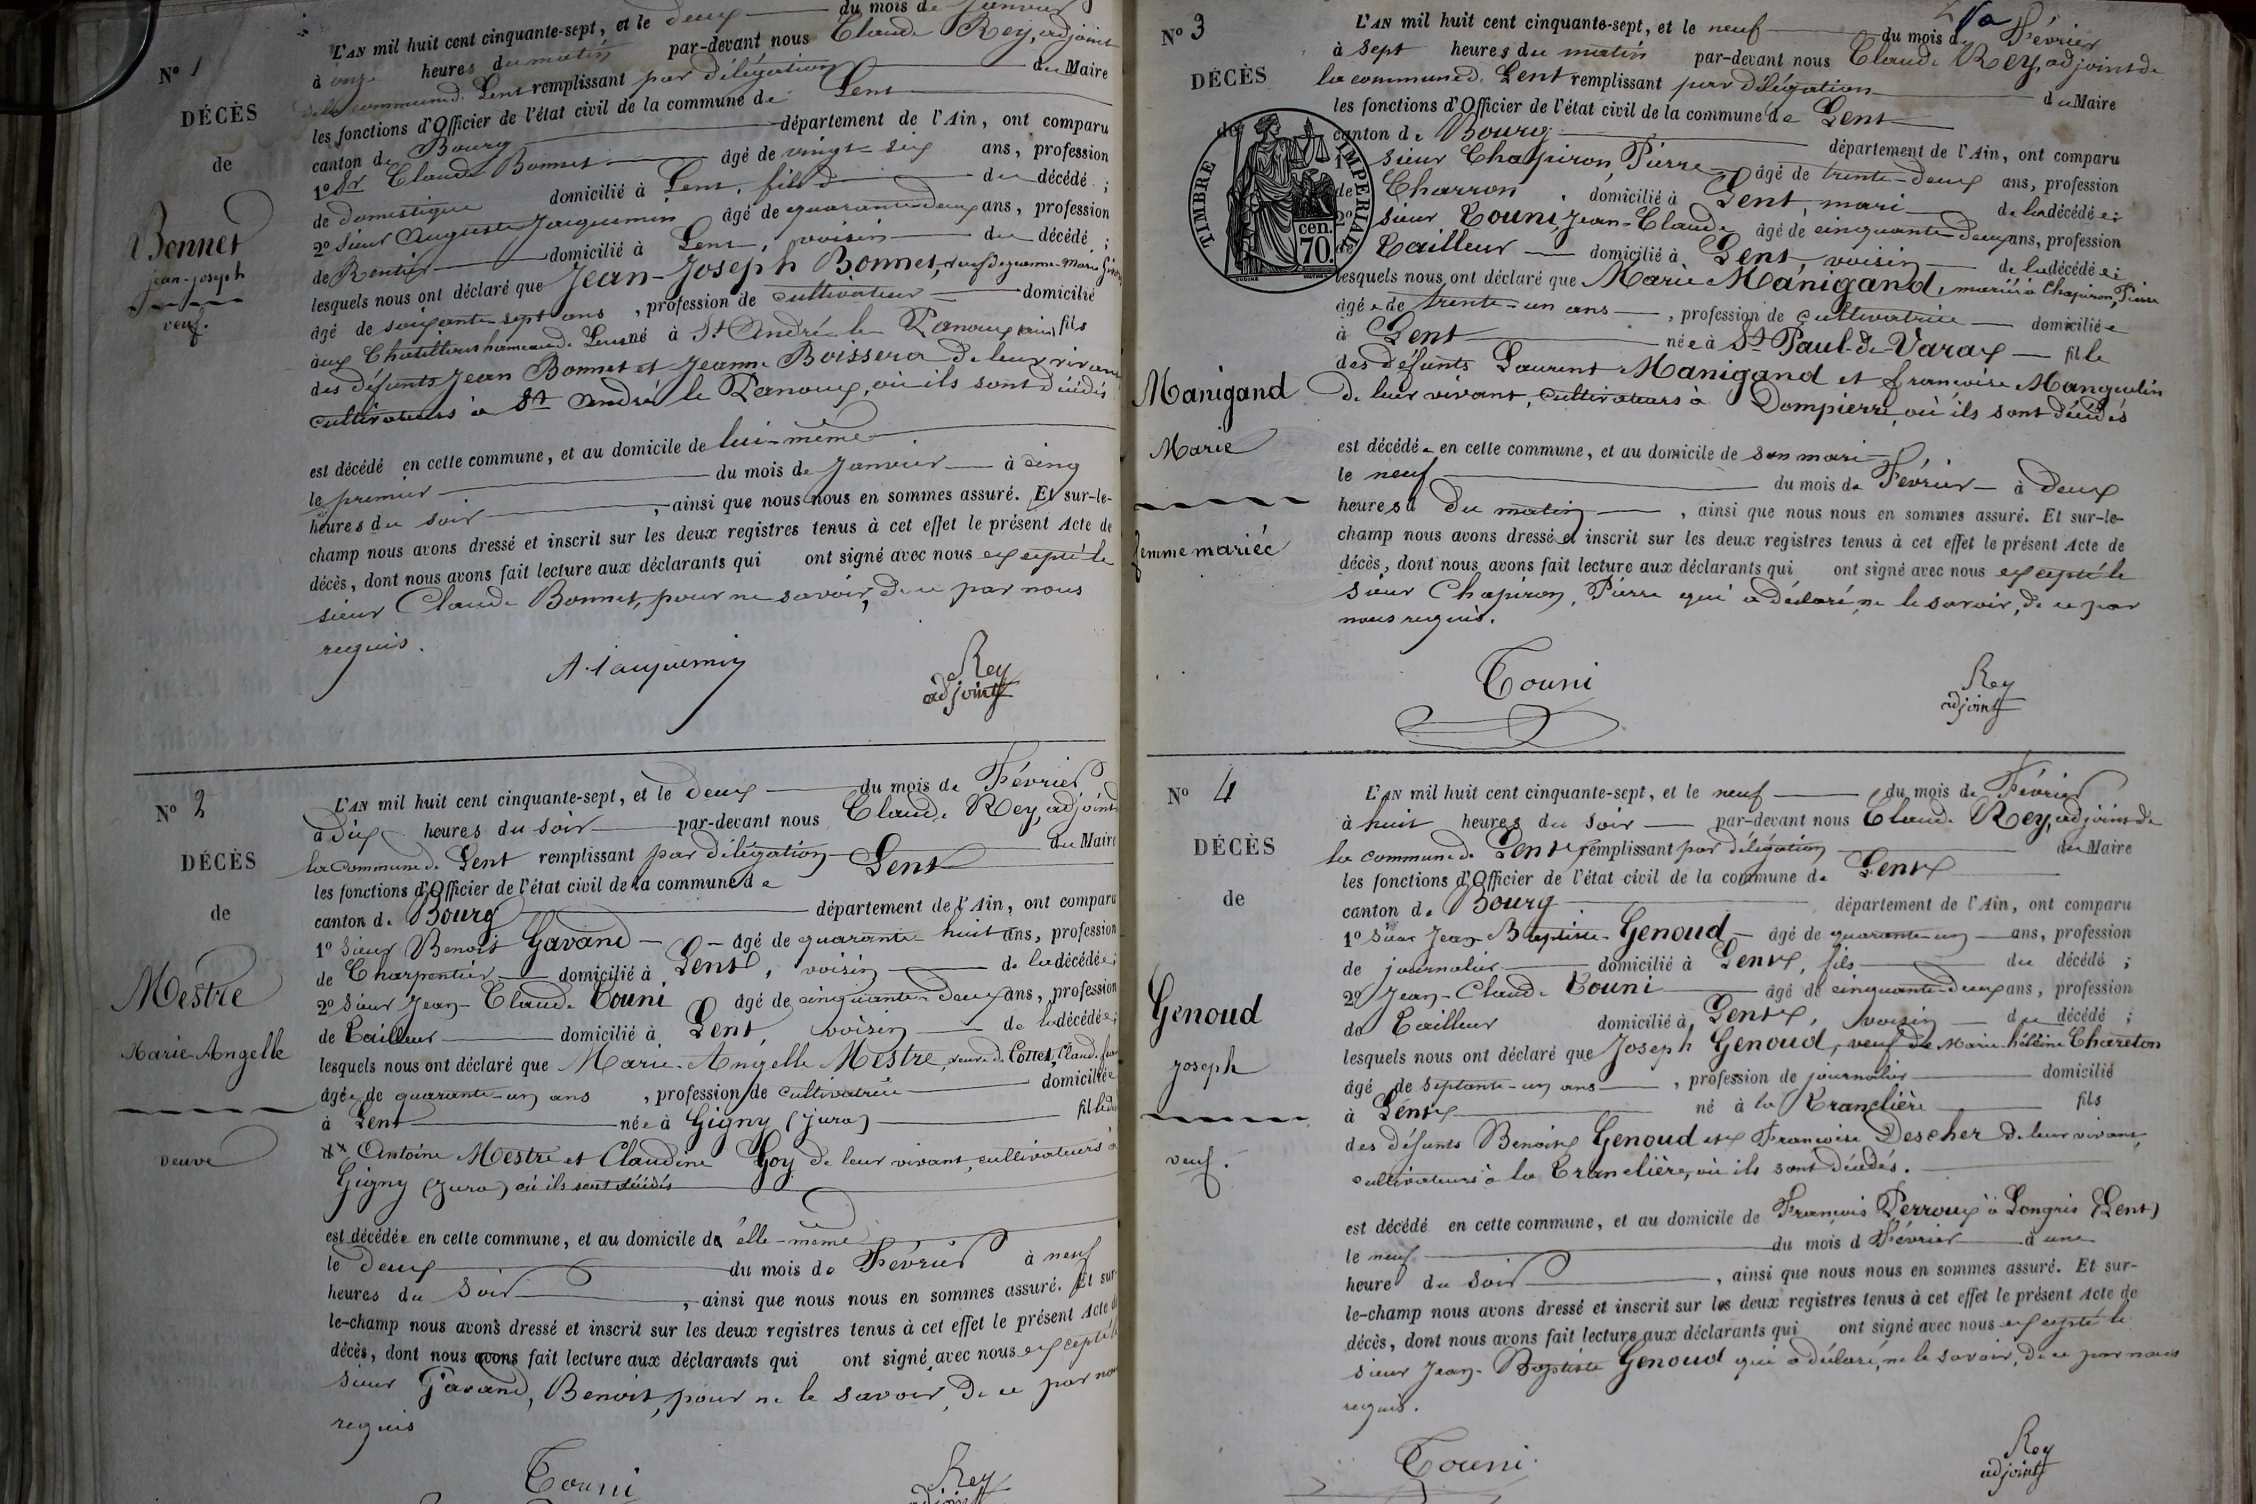 N° 1
DÉCÈS
de
Bonnet
jean-joseph
veuf.
L'AN mil huit cent cinquante-sept, et le deux du mois de Janvier
à onze heures du matin par-devant nous Claude Rey, adjoint
de la commune de Lent remplissant par délégation du Maire
les fonctions d'Officier de l'état civil de la commune de Lent
canton de Bourg département de l'Ain, ont comparu
1° Sr Claude Bonnet âgé de vingt-six ans, profession
de domestique domicilié à Lent, fils du décédé ;
2° sieur Auguste Jacquemin âgé de quarante-deux ans, profession
de Rentier domicilié à Lent, voisin du décédé ;
lesquels nous ont déclaré que Jean-Joseph Bonnet, veuf de jeanne-Marie
âgé de soixante-sept ans, profession de cultivateur domicilié
aux hameau de Lent né à St André le Panoux fils
des défunts Jean Bonnet et Jeanne Boissera de leur vivant
cultivateurs à St André le Panoux, où ils sont décédés
est décédé en cette commune, et au domicile de lui-même
le premier du mois de Janvier à cinq
heures du soir, ainsi que nous nous en sommes assuré. Et sur-le-
champ nous avons dressé et inscrit sur les deux registres tenus à cet effet le présent Acte de
décès, dont nous avons fait lecture aux déclarants qui ont signé avec nous excepté le
sieur Claude Bonnet, pour ne savoir, de ce par nous
requis.
A. Jacquemin Rey
adjoint
N° 2
DÉCÈS
de
Mestre
Marie-Angelle
veuve
L'AN mil huit cent cinquante-sept, et le deux du mois de Février
à dix heures du soir par-devant nous Claude Rey, adjoint de
la commune de Lent remplissant par délégation du Maire
les fonctions d'Officier de l'état civil de la commune de Lent
canton de Bourg département de l'Ain, ont comparu
1° sieur Benoit Gavand âgé de quarante-huit ans, profession
de Charpentier domicilié à Lent, voisin de la décédée ;
2° sieur Jean-Claude Touni âgé de cinquante-deux ans, profession
de Tailleur domicilié à Lent, voisin de la décédée ;
lesquels nous ont déclaré que Marie-Angelle Mestre, veuve de Cottet, Claude
âgée de quarante-un ans, profession de cultivatrice domiciliée
à Lent née à Gigny (Jura) fille des
dts Antoine Mestre et Claudine Goy de leur vivant, cultivateurs à
Gigny (Jura) où ils sont décédés
est décédée en cette commune, et au domicile de elle-même
le deux du mois de Février à neuf
heures du soir, ainsi que nous nous en sommes assuré. Et sur-
le-champ nous avons dressé et inscrit sur les deux registres tenus à cet effet le présent Acte de
décès, dont nous avons fait lecture aux déclarants qui ont signé avec nous excepté le
sieur Gavand, Benoit, pour ne le savoir, de ce par nous
requis
Touni Rey
adjoint
N° 3
DÉCÈS
de
TIMBRE IMPERIAL
70 cen.
Manigand
Marie
femme mariée
L'AN mil huit cent cinquante-sept, et le neuf du mois de Février
à sept heures du matin par-devant nous Claude Rey, adjoint de
la commune de Lent remplissant par délégation du Maire
les fonctions d'Officier de l'état civil de la commune de Lent
canton de Bourg département de l'Ain, ont comparu
1° sieur Chapiron, Pierre âgé de trente-deux ans, profession
de Charron, domicilié à Lent, mari de la décédée ;
2° sieur Touni, Jean-Claude âgé de cinquante-deux ans, profession
de Tailleur domicilié à Lent voisin de la décédée ;
lesquels nous ont déclaré que Marie Manigand, mariée à Chapiron, Pierre
âgée de trente-un ans, profession de cultivatrice domiciliée
à Lent née à St Paul-de-Varax fille
des défunts Laurent Manigand et françoise Mangculin
de leur vivant, cultivateurs à Dompierre, où ils sont décédés
est décédée en cette commune, et au domicile de son mari
le neuf du mois de Février à deux
heures du matin, ainsi que nous nous en sommes assuré. Et sur-le-
champ nous avons dressé et inscrit sur les deux registres tenus à cet effet le présent Acte de
décès, dont nous avons fait lecture aux déclarants qui ont signé avec nous excepté le
sieur Chapiron, Pierre qui a déclaré ne le savoir, de ce par
nous requis.
Touni Rey
adjoint
N° 4
DÉCÈS
de
Genoud
joseph
veuf.
L'AN mil huit cent cinquante-sept, et le neuf du mois de Février
à huit heures du soir par-devant nous Claude Rey, adjoint de
la commune de Lent remplissant par délégation du Maire
les fonctions d'Officier de l'état civil de la commune de Lent
canton de Bourg département de l'Ain, ont comparu
1° sieur Jean-Baptiste Genoud âgé de quarante-un ans, profession
de journalier domicilié à Lent, fils du décédé ;
2° Jean-Claude Touni âgé de cinquante-deux ans, profession
de Tailleur domicilié à Lent, voisin du décédé ;
lesquels nous ont déclaré que Joseph Genoud, veuf de Marie-hélène Chareton
âgé de septante-un ans, profession de journalier domicilié
à Lent né à la Tranclière fils
des défunts Benoit Genoud et Françoise Descher de leur vivant,
cultivateurs à la Tranclière, où ils sont décédés.
est décédé en cette commune, et au domicile de François Perroux à Longris (Lent)
le neuf du mois d Février à une
heure du soir, ainsi que nous nous en sommes assuré. Et sur-
le-champ nous avons dressé et inscrit sur les deux registres tenus à cet effet le présent Acte de
décès, dont nous avons fait lecture aux déclarants qui ont signé avec nous excepté le
sieur Jean-Baptiste Genoud qui a déclaré, ne le savoir, de ce par nous
requis.
Touni Rey
adjoint